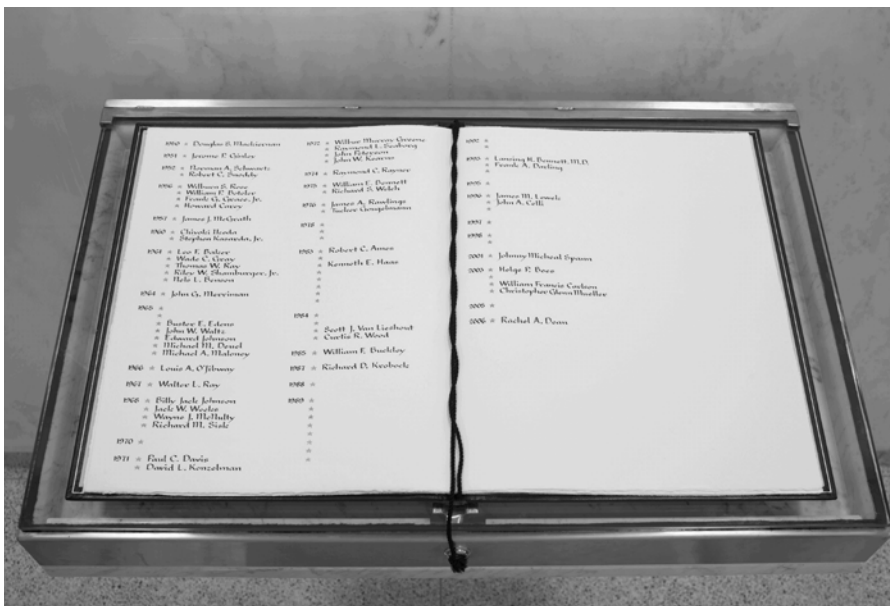 1950 Douglas S. Mackiernan
1951 Jerome P. Ginley
1952 Norman A. Schwartz
Robert C. Snoddy
1956 Wilburn S. Rose
William P. Boteler
Frank G. Grace, Jr.
Howard Carey
1957 James J. McGrath
1960 Chiyoki Ikeda
Stephen Kasarda, Jr.
1961 Leo F. Baker
Wade C. Gray
Thomas W. Ray
Riley W. Shamburger, Jr.
Nels L. Benson
1964 John G. Merriman
1965
Buster E. Edens
John W. Waltz
Edward Johnson
Michael M. Deuel
Michael A. Maloney
1966 Louis A. O'Jibway
1967 Walter L. Ray
1968 Billy Jack Johnson
Jack W. Weeks
Wayne J. McNulty
Richard M. Sisk
1970
1971 Paul C. Davis
David L. Konzelman
1972 Wilbur Murray Greene
Raymond L. Seaborg
John Peterson
John W. Kearns
1974 Raymond C. Rayner
1975 William E. Bennett
Richard S. Welch
1976 James A. Rawlings
Tucker Gougelmann
1978
1983 Robert C. Ames
Kenneth E. Haas
1984
Scott J. Van Lieshout
Curtis R. Wood
1985 William F. Buckley
1987 Richard D. Krobock
1988
1989
1992
1993 Lansing H. Bennett, M.D.
Frank A. Darling
1995
1996 James M. Lewek
John A. Celli
1997
1998
2001 Johnny Micheal Spann
2003 Helge P. Boes
William Francis Carlson
Christopher Glenn Mueller
2005
2006 Rachel A. Dean